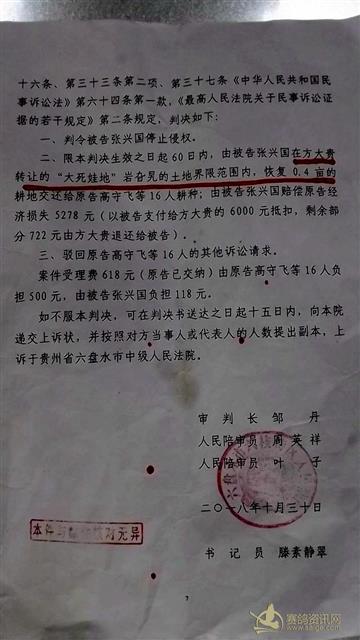 十六条、第三十三条第二项、第三十七条《中华人民共和国民
事诉讼法》第六十四条第一款，《最高人民法院关于民事诉讼证
据的若干规定》第二条规定，判决如下：
一、判令被告张兴国停止侵权。
二、限本判决生效之日起60日内，由被告张兴国在方大贵
转让的“大死娃地”岩仓晃的土地界限范围内，恢复0.4亩的
耕地交还给原告高守飞等16人耕种；由被告张兴国赔偿原告经
济损失5278元（以被告支付给方大贵的6000元抵扣，剩余部
分722元由方大贵退还给被告）。
三、驳回原告高守飞等16人的其他诉讼请求。
案件受理费618元（原告已交纳）由原告高守飞等16人负
担500元，由被告张兴国负担118元。
如不服本判决，可在判决书送达之日起十五日内，向本院
递交上诉状，并按照对方当事人或代表人的人数提出副本，上
诉于贵州省六盘水市中级人民法院。
审 判 长 邹 丹
人民陪审员 周 英 祥
人民陪审员 叶 子
二〇一八年十月三十日
本件与 核对无异
书 记 员 滕素静翠
7
赛鸽资讯网
www.saige.com